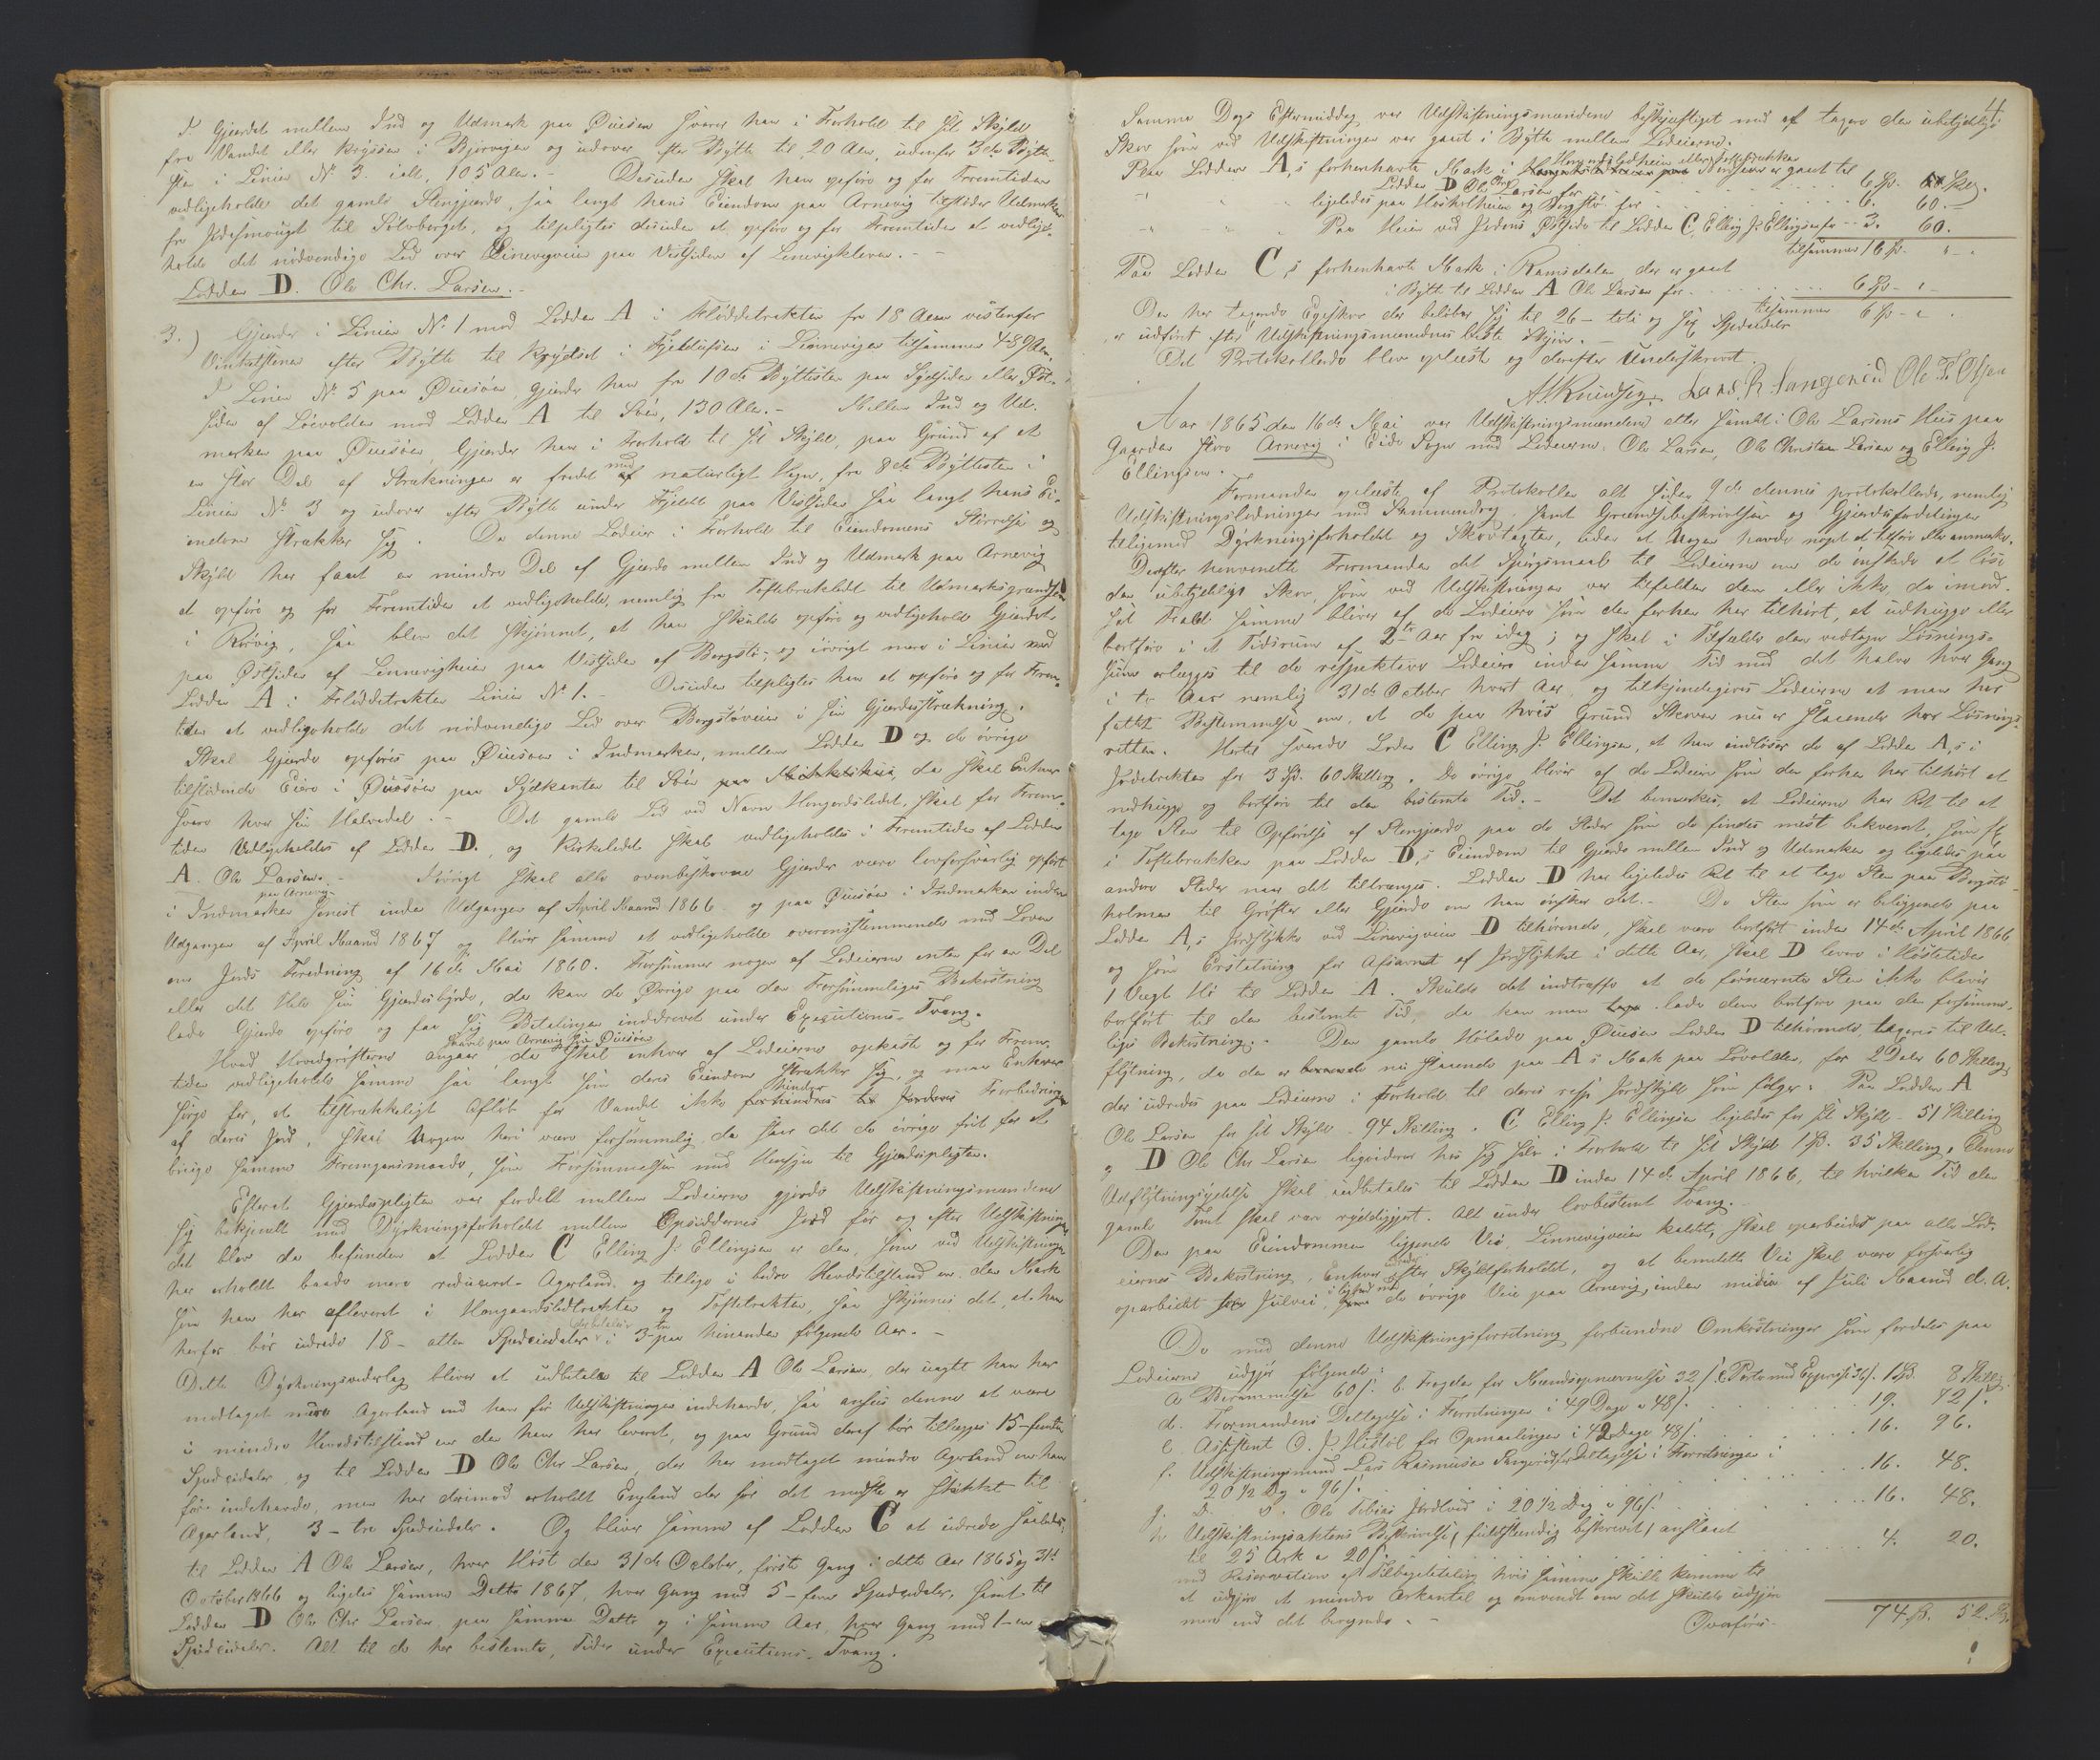 I Gjærdet mellem Ind og Udmark paa Øuesøen svarer han i Forhold til sit Skyld
fra Vandet eller krogsøen i Bjorvigen og udover efter Bytte til 20 Alen, udenfor 3die Bytte-
sten i Linien No 3. ialt, 105 Alen. - Desuden skal han opføre og for Fremtiden
vedligeholde det gamle Stengjærde, saa langt hans Eiendom paa Arnevig tilstøder Udmarken
fra til Sølvberget, og tilpligtes desuden at opføre og for Fremtiden at vedlige-
holde det nødvendige Led over Linevigveien paa Vestsiden af Linevigkleven. -
Lodden D. Ole Chr. Larsen. -
3.) Gjærder i Linien No 1 mod Lodden A i Fløddetrakten fra 18 Alen vestenfor
Vinkelstenen efter Bytte til Krydset i i Linnevigen tilsammen 489 Alen.
I Linien No 5 paa Øuesøen, gjærder han fra 10de Byttesten paa Sydsiden eller Øst-
siden af Løevolden mod Lodden A til Søen, 130 Alen. - Mellem Ind og Ud-
marken paa Øuesøen, Gjærder han i Forhold til sit Skyld, paa Grund af at
en stor Del af Strækningen er fredet af med naturligt Værn, fra 8de Byttesten i
Linien No 3 og udover efter Bytte under Fjeldet paa Vestsiden saa langt hans Ei-
endom strækker sig. Da denne Lodeier i Forhold til Eiendomens Størrelse og
Skyld har faaet en mindre Del af Gjærde mellem Ind og Udmark paa Arnevig
at opføre og for Fremtiden at vedligeholde, nemlig fra Toftebrækledet til Udmarksgrændsen
i Rørvig, saa blev det skjønnet, at han skulde opføre og vedligeholde Gjærdet
paa Østsiden af Linnevigheien paa Vestsiden af Borgstø; og iøvrigt mere i Linien mod
Lodden A i Fløddetrakten Linien No 1. - Desuden tilpligtes han at opføre og for Frem-
tiden at vedligeholde det nødvendige Led over Borgstøveien i sin Gjærdestrækning.
Skal Gjærde opføres paa Øuesøen i Indmarken, mellem Lodden D og de øvrige
tilstødende Eiere i Øuesøen paa Sydkanten til Søen paa da skal Enhver
svare hver sin Halvedel. - Det gamle Led ved Navn Hougaardsledet, skal for Frem-
tiden Vedligeholdes af Lodden D., og Kirkeledet skal vedligeholdes i Fremtiden af Lodden
A. Ole Larsen. - Iøvrigt skal alle ovenbeskrevne Gjærder være lovforsvarlig opført
i Indmarken paa Arnevig senest inden Udgangen af April Maaned 1866 og paa Øuesøen i Indmarken inden
Udgangen af April Maaned 1867 og bliver samme at vedligeholde overensstemmende med Loven
om Jords Fredning af 16de Mai 1860. Forsømmer nogen af Lodeierne enten for en Del
eller det Hele sin Gjærdesbyrde, da kan de Øvrige paa den Forsømmeliges Bekostning
lade Gjærde opføre og faa sig Betalingen inddrevet under Executions-Tvang.
Hvad Hovedgrøfterne angaar saavel paa Arnevig som Øuesøen, da skal enhver af Lodeierne opkaste og for Frem-
tiden vedligeholde samme saa langt som deres Eiendom strækker sig, og maa Enhver
sørge for, at tilstrækkeligt Afløb for Vandet ikke forhindres til Jordens hinder Forbedringen
af deres Jord, skal Nogen heri være forsømmelig da staar det de øvrige frit for at
bruge samme Fremgangsmaade, som Forsømmelsen med Hensyn til Gjærdepligten.
Efterat Gjærdespligten var fordelt mellem Lodeierne gjorde Udskiftningsmændene
sig bekjendt med Dyrkningsforholdet mellem Opsiddernes Jord før og efter Udskiftningen
det blev da befunden at Lodden C Elling J. Ellingsen er den, som ved Udskiftningen
har erholdt baade mere reduceret Agerland og tillige i bedre Hævdstilstand en den Mark
som han har afleveret i Hougaardsledtrakten og Toftetrakten, saa skjønnes det, at han
herfor bør udrede 18 - atten Speciedaler der betales i 3-tre paa hinanden følgende Aar. -
Dette Dyrkningsvederlag bliver at udbetale til Lodden A Ole Larsen, der uagtet han har
modtaget mere Agerland end han før Udskiftningen indehavde, saa ansees denne at være
i mindre Hævdstilstand en den han har leveret, og paa Grund deraf bør tillægges 15-femten
Speciedaler og til Lodden D Ole Chr Larsen, der har modtaget mindre Agerland en han
før indehavde, men har derimod erholdt England der for det meste er skikket til
Agerland, 3 - tre Speciedaler. Og bliver samme af Lodden C at udrede saaledes;
til Lodden A Ole Larsen, hver Høst den 31de October, første Gang i dette Aar 1865 og 31te
October 1866 og ligeledes samme Datto 1867, hver Gang med 5 - fem Speciedaler, samt til
Lodden D Ole Chr Larsen paa samme Datto og i samme Aar, hver Gang med 1 - en
Speciedaler. Alt til de her bestemte, Tider under Executions-Tvang.
4
Samme Dags Eftermiddag var Udskiftningsmændene beskjæftiget med af taxere den ubetydelige
Skov som ved Udskiftningen var gaaet i Bytte mellem Lodeierne.
Paa Lodden A,s forhenhavte Mark i Hougaardsledheien eller Toftebrækken er gaaet til
Lodden D Ole Chr Larsen for 6 Sp. 60 Skilg.
" " " ligeledes paa Høiholtheien og Borgstø for 6. 60. -
" " " Paa Heien ved Jordens Østside til Lodden C. Elling J. Ellingsen for 3. 60.
tilsammen 16 Sp. " - "
Paa Lodden C,s forhenhavte Mark i Ramsdalen der er gaaet
i Bytte til Lodden A Ole Larsen for 6 Sp - " -
tilsammen 6 Sp - " .
Den her taxerede Egeskov der beløber sig til 26 - toti og sex Speciedaler
er udført efter Udskiftningsmændenes bedste Skjøn. -
Det Protokollerede blev oplæst og derefter Underskrevet.
A. Knudsen. Lars R. Sangereid Ole T. Olsen
Aar 1865 den 16de Mai var Udskiftningsmændene atter samlet i Ole Larsens Hus paa
Gaarden Store Arnevig i Eide Sogn med Lodeierne, Ole Larsen, Ole Christen Larsen og Elling J.
Ellingsen.
Formanden oplæste af Protokollen alt siden 9de dennes protokollerede, nemlig
Udskiftningslodninger med Sammendrag, samt Grændsebeskrivelsen og Gjærdesfordelingen
tilligemed Dyrkningsforholdet og Skovtaxten, uden at Nogen havde noget at tilføre eller anmærke.
Derefter henvendte Formanden det Spørgsmaal til Lodeierne om de ønskede at løse
den ubetydelige Skov, som ved Udskiftningen var tilfalden dem eller ikke, da i mod-
sat Fald samme bliver af de Lodeiere som den forhen har tilhørt, at udhugge eller
bortføre i et Tidsrum af 2to Aar fra idag; og skal i Tilfælde den vedtagne Løsnings-
sum erlægges til de respektive Lodeiere inden samme Tid med det halve hver Gang
i to Aar nemlig 31de October hvert Aar, og tilkjendegives Lodeierne at man har
fattet Bestemmelse om, at de paa hvis Grund Skoven nu er staaende har Løsnings-
retten. Hertil svarede Loden C Elling J. Ellingsen, at han indløser de af Lodden A,s i
Jordetrakten for 3 Sp. 60 Skilling. De øvrige bliver af de Lodeiere som den forhen har tilhørt at
nedhugge og bortføre til den bestemte Tid. - Det bemærkes, at Lodeierne har Ret til at
tage Sten til Opførelse af Stengjærde paa de Steder som de findes mest bekvemt, som f. Ex
i Toftebrækken paa Lodden D,s Eiendom til Gjærde mellem Ind og Udmarken og ligeledes paa
andere Steder naar det tiltrænges. Lodden D har ligeledes Ret til at tage Sten paa Borgstø-
holmen til Grøfter eller Gjærde om han ønsker det. - De Sten som er beliggende paa
Lodden A,s Jordstykke ved Linevigveien D tilhørende, skal være bortført inden 14de April 1866
og som Erstatning for Afsavnet af Jordstykket i dette Aar, skal D levere i Høstetiden
1 Vægt Hø til Lodden A. Skulde det indtræffe at de førnævnte Sten ikke bliver
bortført til den bestemte Tid, da kan man tage lade dem bortføre paa den forsømme-
liges Bekostning. - Den gamle Hølade paa Øuesøen Lodden D tilhørende, taxeres til Ud-
flytning, da den er nu staaende paa A,s Mark paa Løvolden, for 2 Daler 60 Skilling,
der udredes paa Lodeierne i Forhold til deres resp. Jordskyld som følger: Paa Lodden A
Ole Larsen for sit Skyld - 94 Skilling. C Elling J. Ellingsen ligeledes for sit Skyld - 51 Skilling
og D Ole Chr Larsen liqviderer hos sig selv i Forhold til sit Skyld 1 Sp. 35 Skilling. Denne
Udflytningsydelse skal udbetales til Lodden D inden 14de April 1866, til hvilken Tid den
gamle Tomt skal være ryddiggjort. Alt under lovbestemt Tvang.
Den paa Eiendommen liggende Vei Linnevigveien kaldet, skal oparbeides paa alle Lod-
eiernes Bekostning, Enhver efter Skyldforholdet, og at bemeldte Vei skal være forsvarlig
oparbeidet til Julvei, i lighed med de øvrige Veie paa Arnevig, inden midten af Juli Maaned d. A.
De med denne Udskiftningsforretning forbundne Omkostninger som fordeles paa
Lodeierne udgjør følgende:
a Berammelse 60 s. b. Fragten for Mændsopnævnelse 32 s. c Porto med Expres 36 s. 1 Sp. 8 Skilg.
d. Formandens Deltagelse i Forretningen i 49 Dage a 48 s. 19. 72 s.
e. Assistent O. J. Hisdøl for Opmaalingen i 42 Dage 48 s. 16. 96.
f. Udskiftningsmand Lars Rasmusen Sangereid for Deltagelse i Forretningen i
20 1/2 Dg a 96 s. 16. 48.
g. D. o. Ole Tobias i 20 1/2 Dag a 96 s. 16. 48.
h Udskiftningsaktens Beskrivelse, fuldstændig beskrevet, anslaaet
til 25 Ark a 20 s. 4. 20.
med Reservation af Tilbagebetaling hvis samme skulde komme til
at udgjøre et mindre Arkantal og omvendt om det skulde udgjøre
mere end det beregnede. -
Overføres. 74 Sp. 52 Sk.